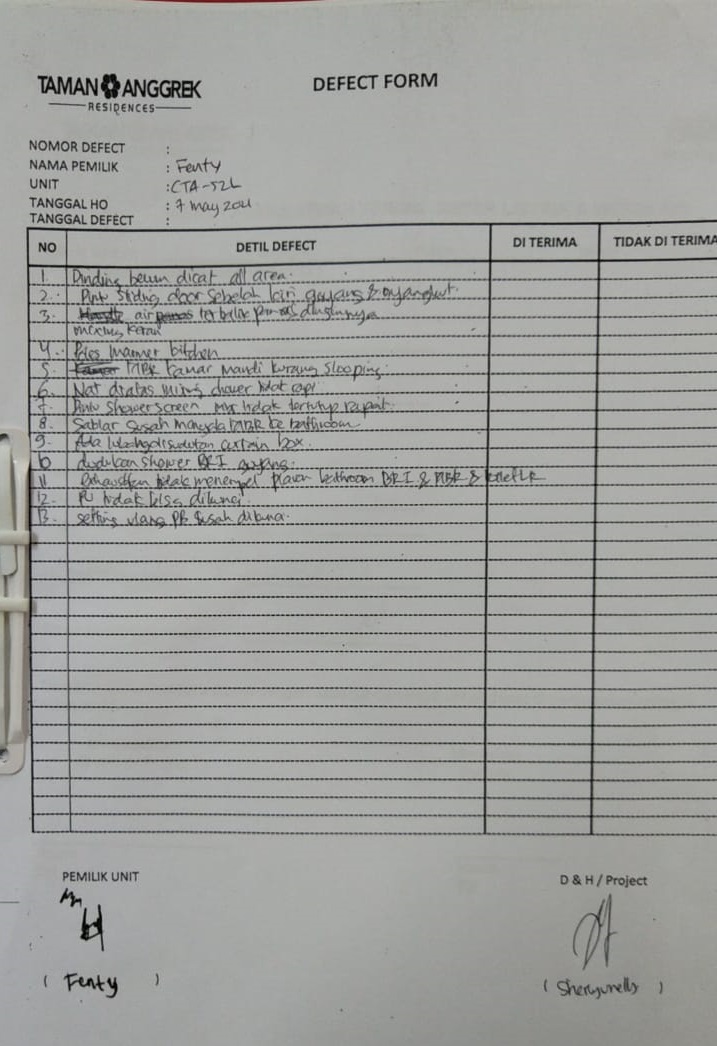 TAMAN ANGGREK
RESIDENCES
DEFECT FORM
NOMOR DEFECT :
NAMA PEMILIK : Fenty
UNIT : CTA-52L
TANGGAL HO : 7 May 2021
TANGGAL DEFECT :
NO DETIL DEFECT DI TERIMA TIDAK DI TERIMA
1. Dinding belum dicat all area.
2. Pintu Sliding door Sebelah kiri goyang & nyangkut.
3. air terbalik panas dinginnya
4. kitchen
5. MBR kamar mandi kurang slooping.
6. Nat diatas shower tidak rapi
7. Pintu Shower screen MBR tidak tertutup rapat.
8. Saklar Susah MBR bathroom.
9. Ada lubang disudutan curtain box.
10 dudukan shower BR1 goyang.
11 Exhaustfan tidak menempel plavon bathroom BR1 & MBR &
12. PU tidak bisa dikunci.
13. setting ulang PB susah dibuka.
PEMILIK UNIT
D & H / Project
( Fenty )
( )